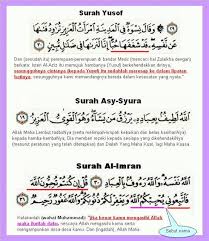 Surah Yusof
وَقَالَ نِسْوَةٌ فِي الْمَدِينَةِ امْرَأَتُ الْعَزِيزِ تُرَاوِدُ فَتَاهَا
عَن نَّفْسِهِ قَدْ شَغَفَهَا حُبًّا
Dan (sesudah itu) perempuan-perempuan di bandar Mesir (mencaci hal Zulaikha dengan)
berkata: Isteri Al-Aziz itu memujuk hambanya (Yusuf) berkehendakkan dirinya,
sesungguhnya cintanya (kepada Yusuf) itu sudahlah meresap ke dalam lipatan
hatinya; sesungguhnya kami memandangnya berada dalam kesesatan yang nyata."
Surah Asy-Syura
اللَّهُ لَطِيفٌ بِعِبَادِهِ يَرْزُقُ مَن يَشَاءُ وَهُوَ الْقَوِيُّ الْعَزِيزُ
Allah Maha Lembut tadbirNya
kepada hamba-hambaNya;
dan Dia lah Yang Maha Kuat, lagi Maha Kuasa.
Surah Al-Imran
قُلْ إِن كُنتُمْ تُحِبُّونَ اللَّهَ
فَاتَّبِعُونِي يُحْبِبْكُمُ اللَّهُ وَيَغْفِرْ لَكُمْ ذُنُوبَكُمْ وَاللَّهُ غَفُورٌ
Katakanlah (wahai Muhammad): "Jika benar kamu mengasihi Allah
maka ikutilah daku, nescaya Allah mengasihi kamu serta
mengampunkan dosa-dosa kamu. Dan (ingatlah), Allah Maha
Sebut nama